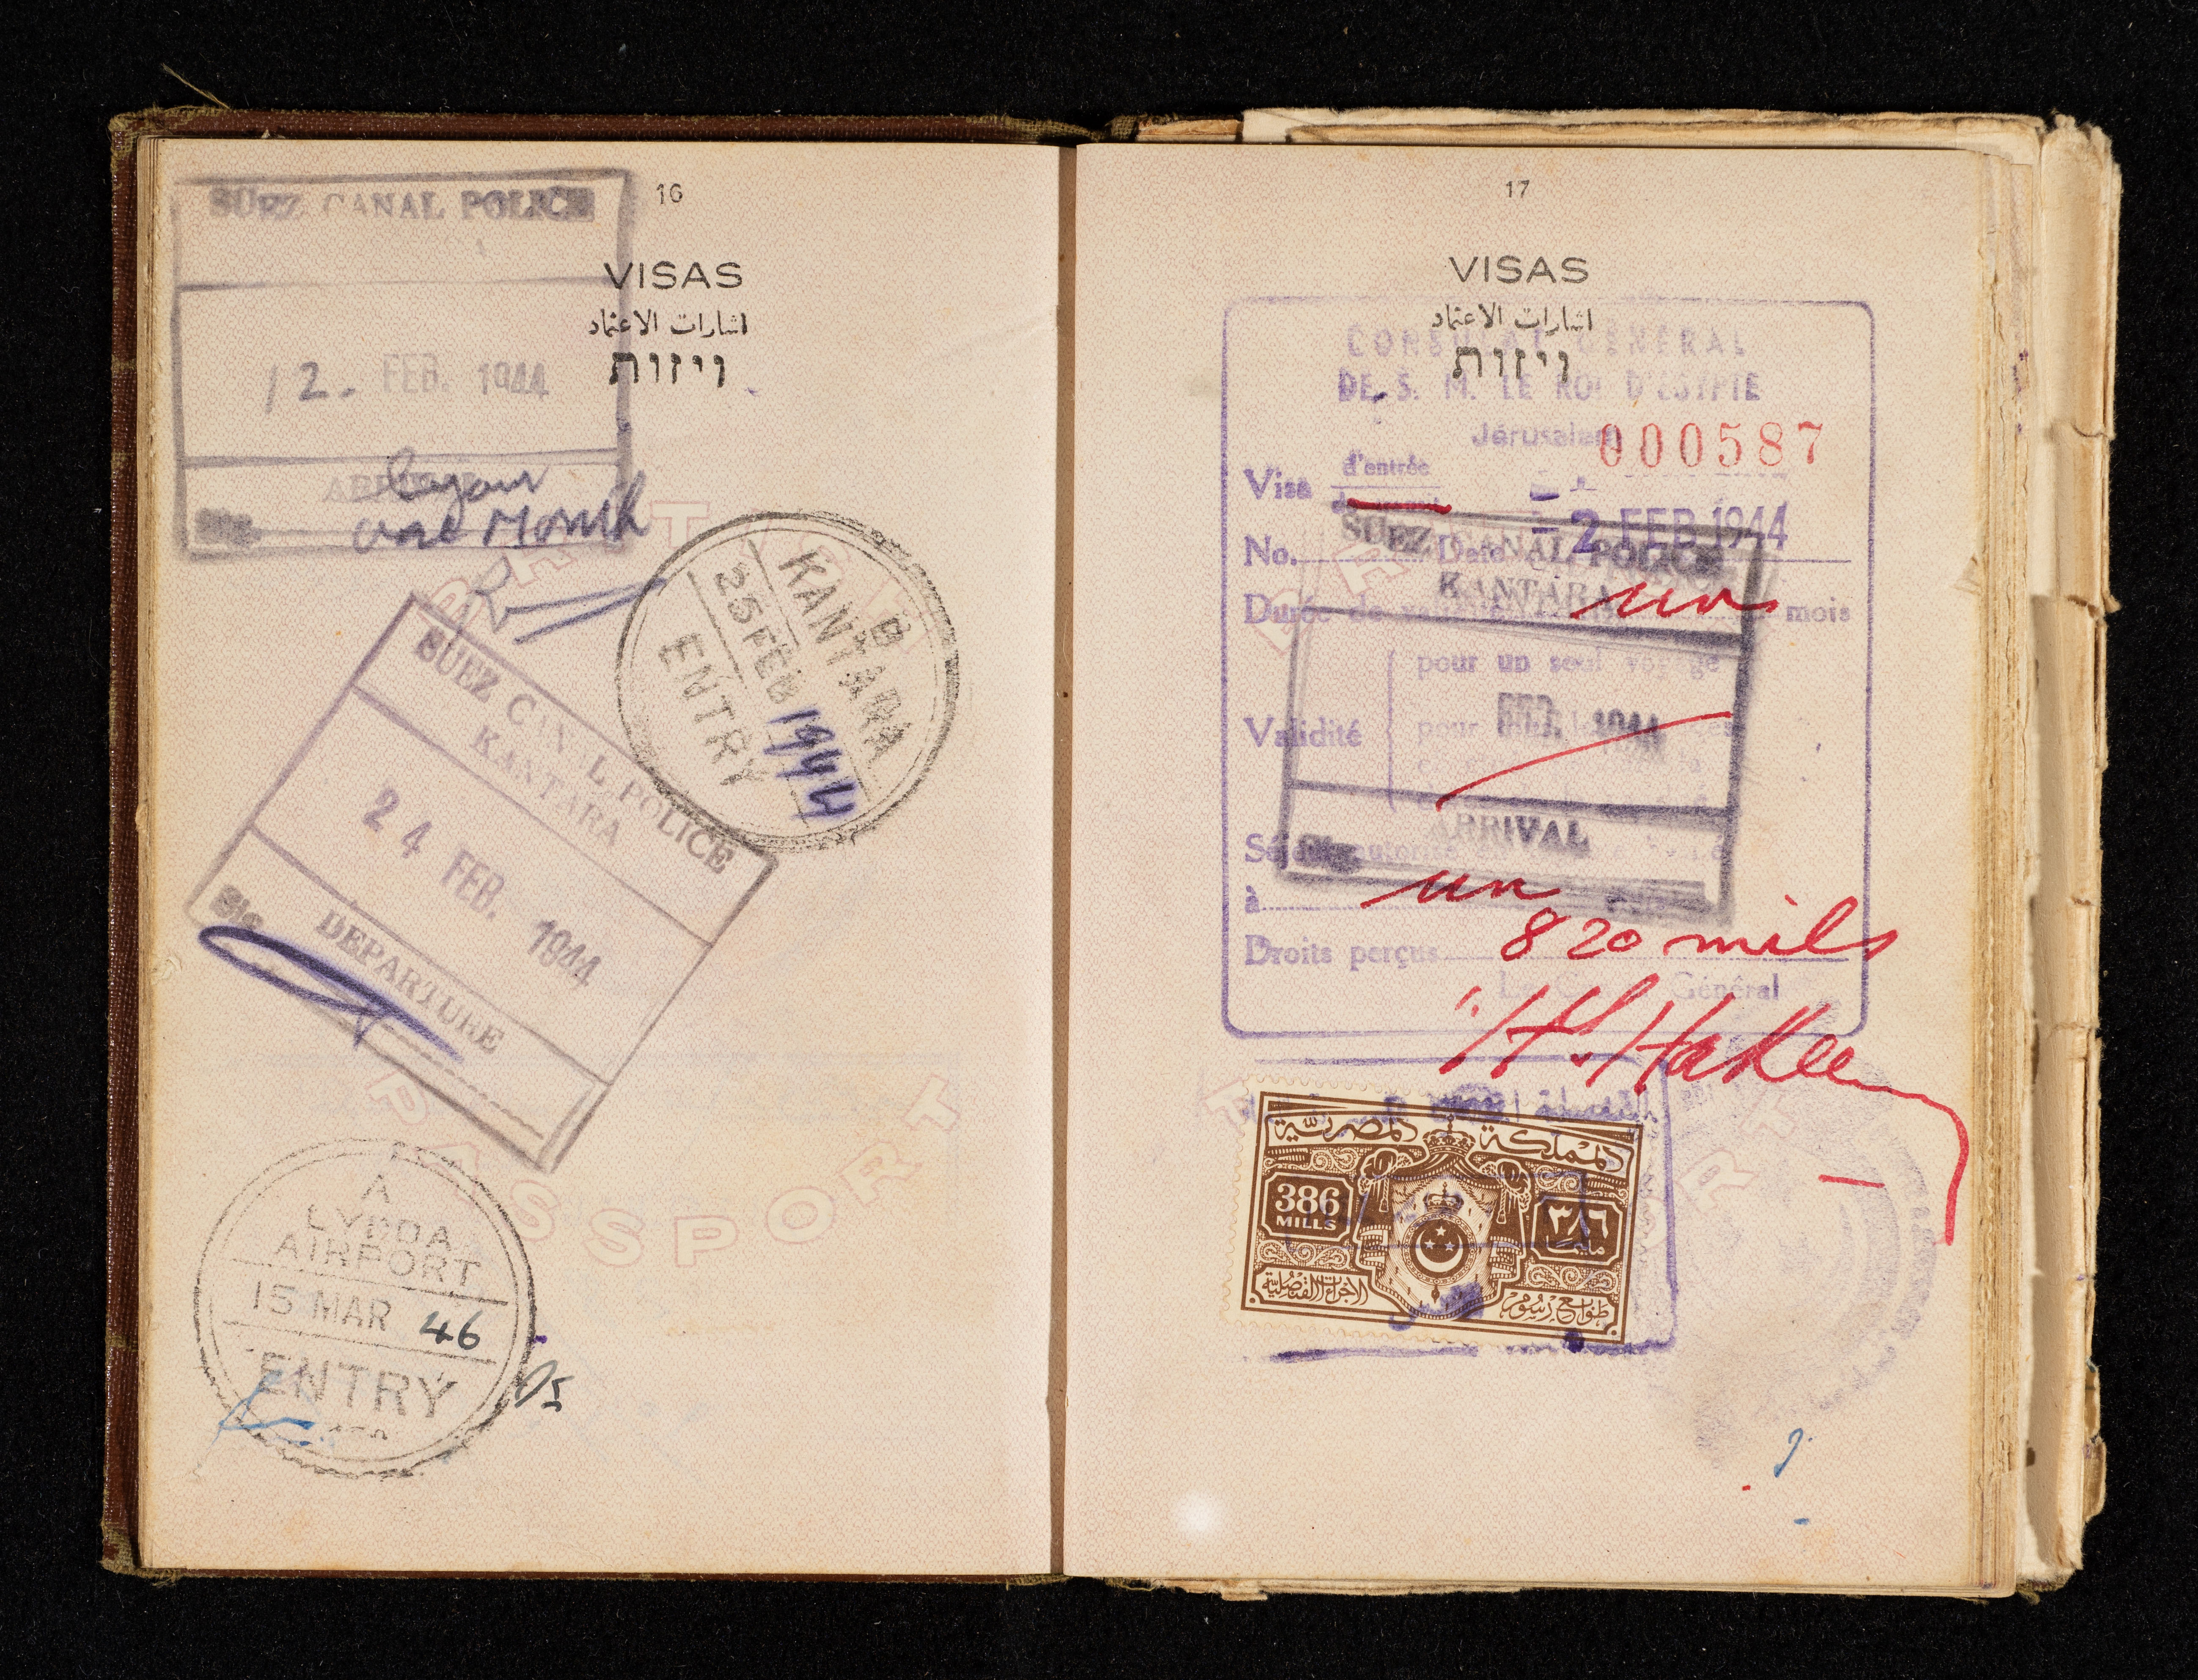 16
SUEZ CANAL POLICE
VISAS
اشارات الاعتماد
ויזות
12. FEB. 1944
one Month
B
KANTARA
25 FEB 1944
ENTRY
SUEZ CANAL POLICE
KANTARA
24 FEB. 1944
DEPARTURE
Sig.
BRITISH
PASSPORT
A
LYDDA
AIRPORT
15 MAR 46
ENTRY
17
VISAS
اشارات الاعتماد
ויזות
CONSULAT GÉNÉRAL
DE S. M. LE ROI D'EGYPTE
Jérusalem
000587
Visa d'entrée
No. Date - 2 FEB 1944
SUEZ CANAL POLICE
KANTARA
Durée de validité un mois
pour un seul voyage
Validité pour
FEB. 1944
ARRIVAL
Séjour autorisé
à un
Droits perçus 820 mils
Le Consul Général
المملكة المصرية
386
MILLS
٣٨٦
طوابع رسوم
الاجراءات القنصلية